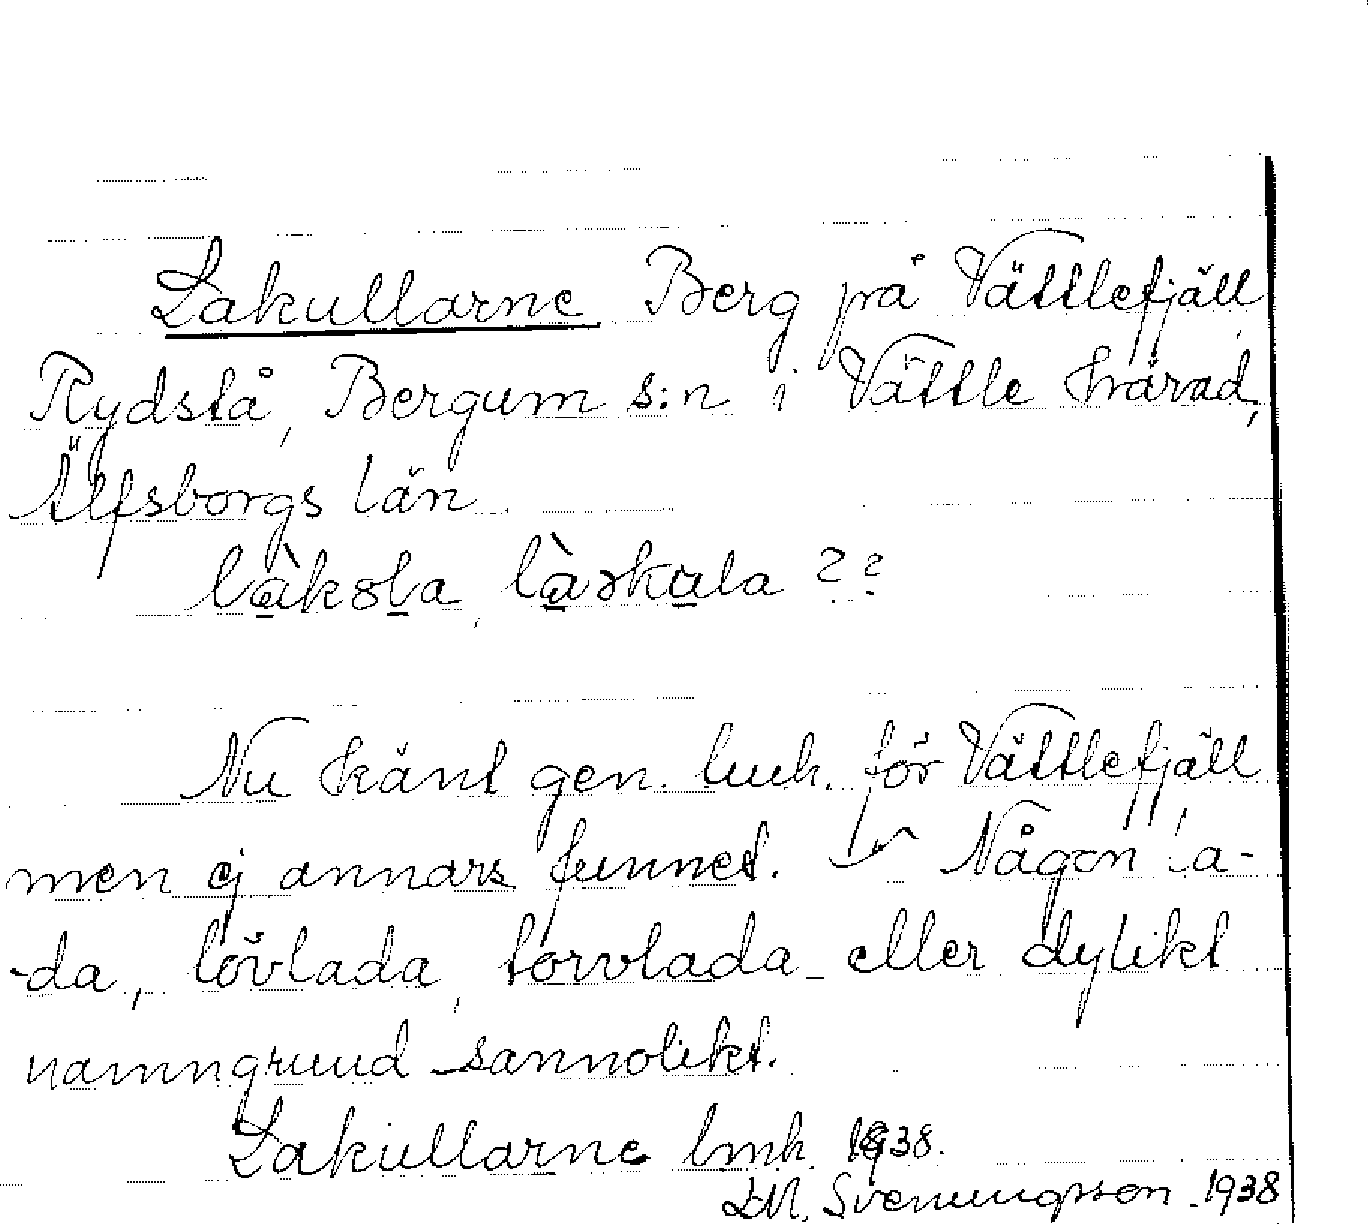 Lakullarne Berg på Vättlefjäll
Rydstå, Bergum s:n i Vättle härad,
Älfsborgs län
làkɷla, làɷkula ??
Nu känt gen. lmk. för Vättlefjäll
men ej annars funnet. Någon la-
-da, lövlada, torvlada eller dylikt
namngrund sannolikt.
Lakullarne lmk 1938.
Svenungsson 1938